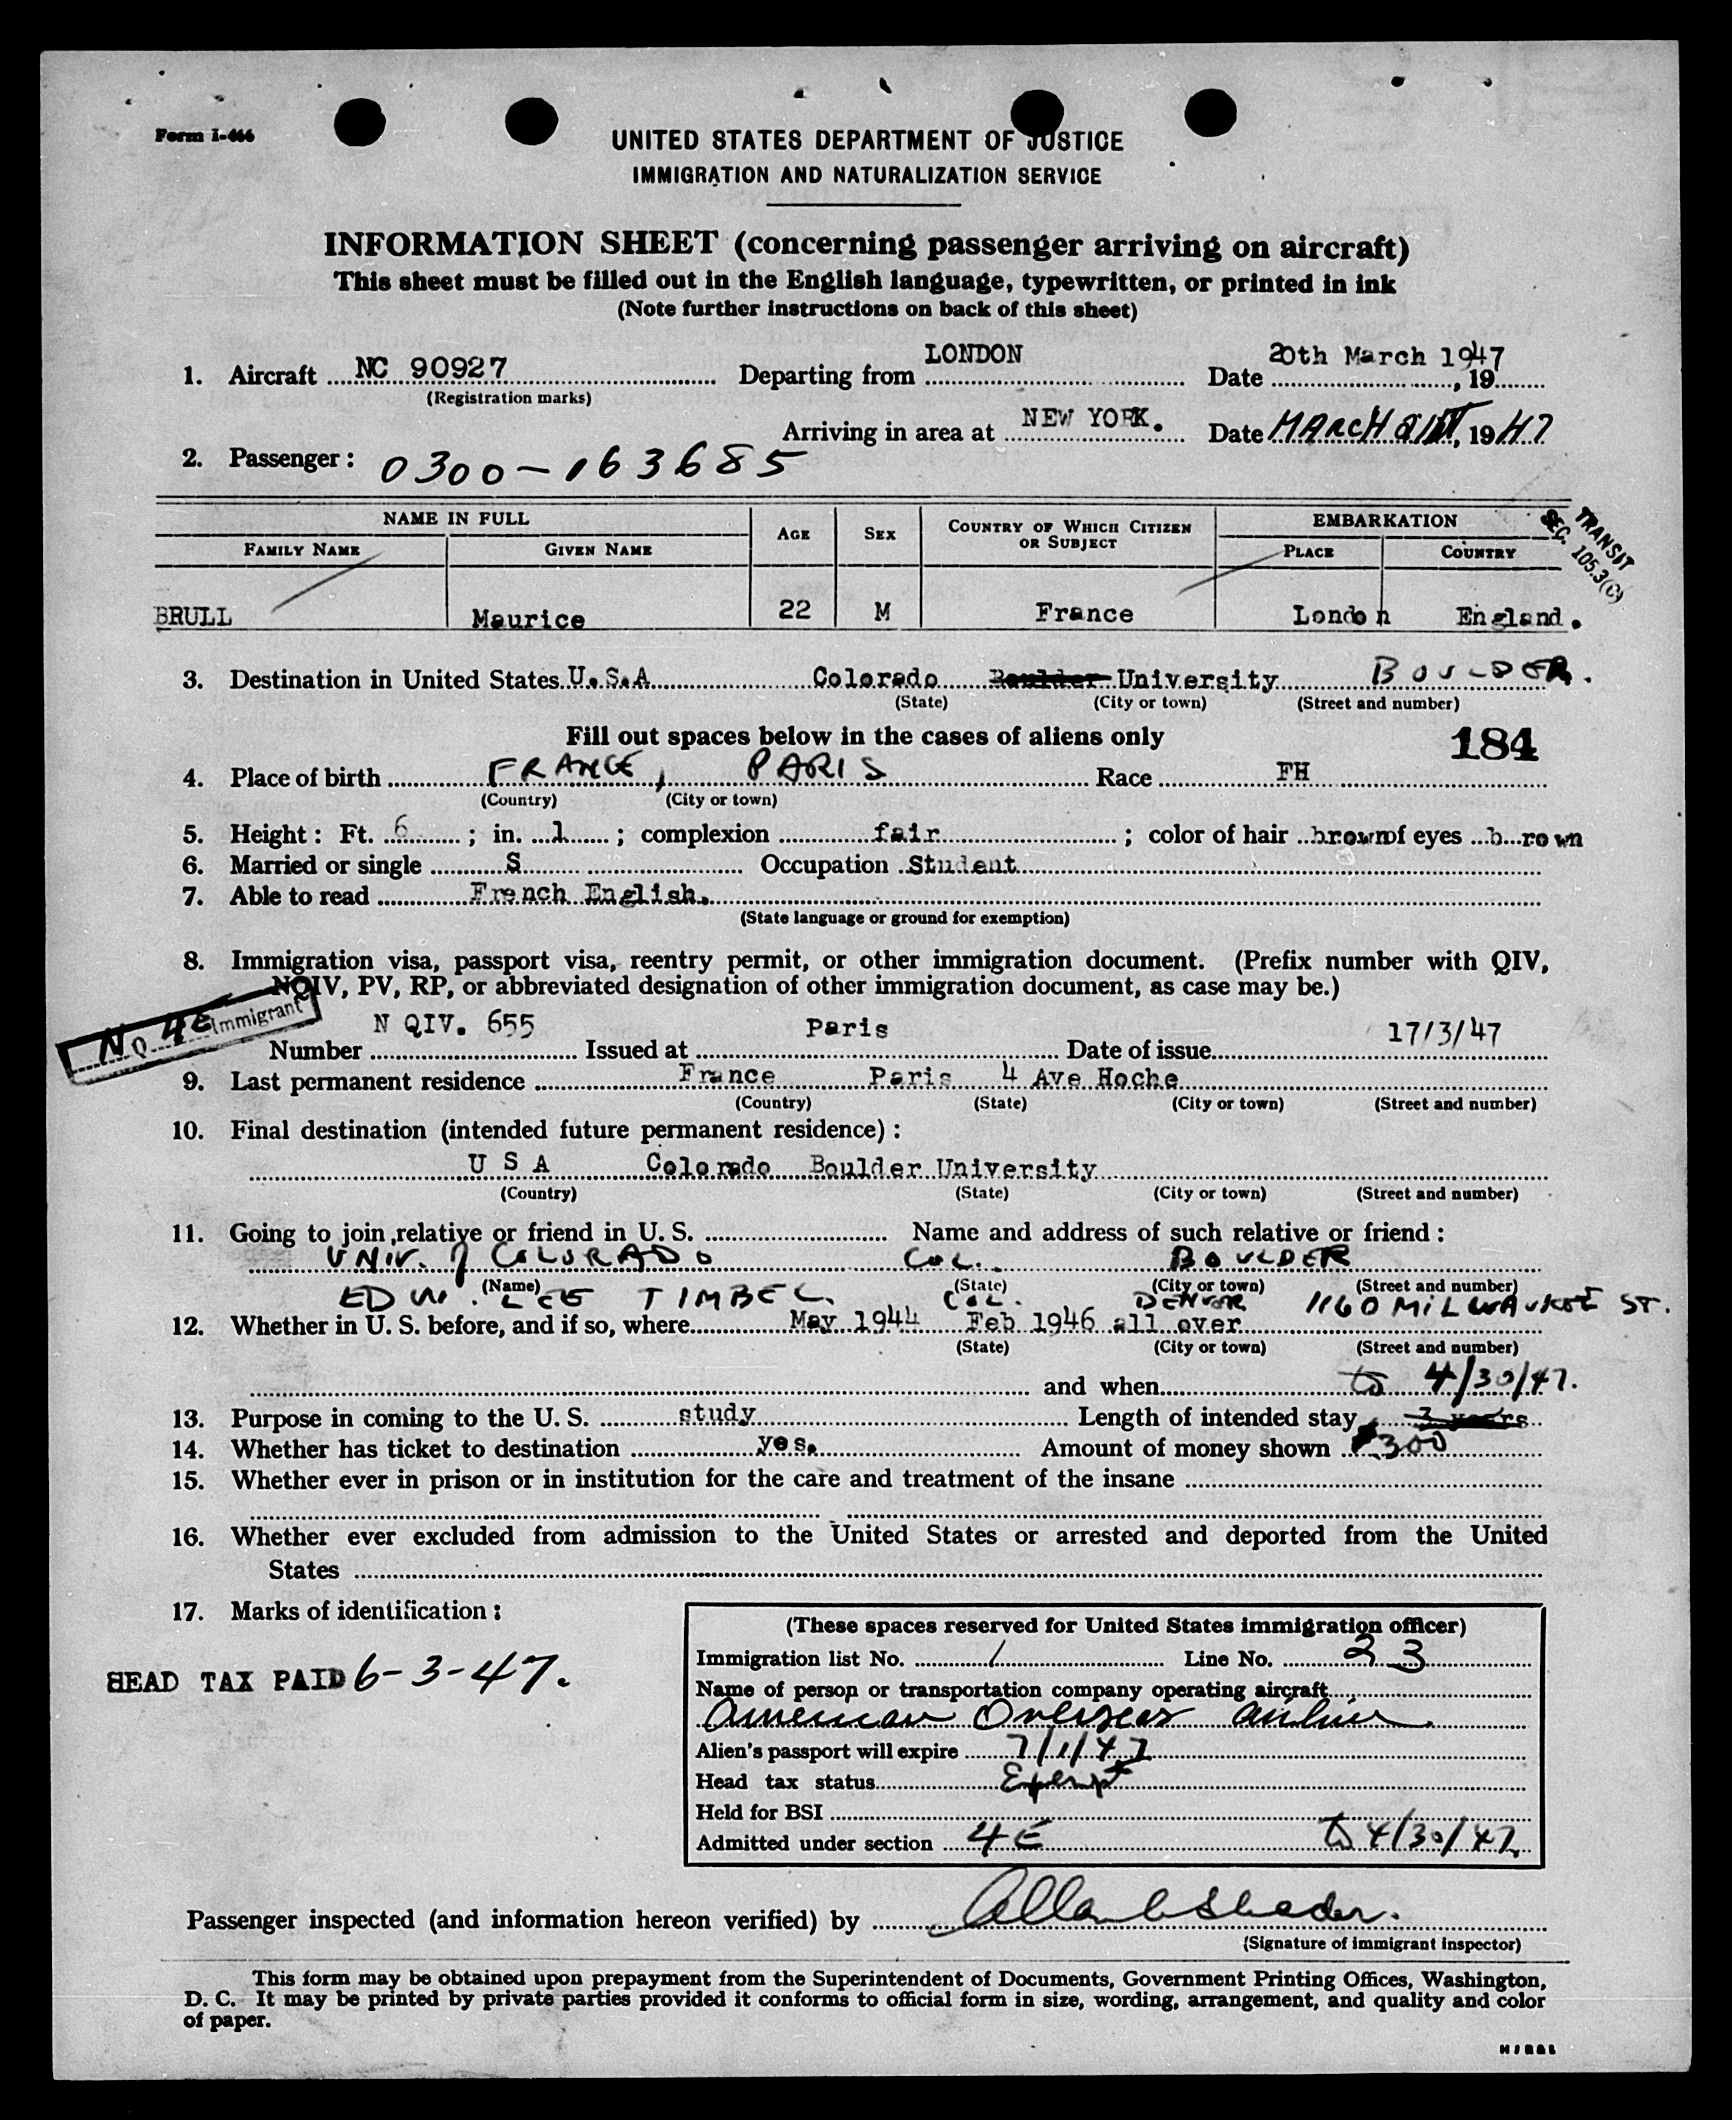 Form I-466
UNITED STATES DEPARTMENT OF JUSTICE
IMMIGRATION AND NATURALIZATION SERVICE
INFORMATION SHEET (concerning passenger arriving on aircraft)
This sheet must be filled out in the English language, typewritten, or printed in ink
(Note further instructions on back of this sheet)
1. Aircraft NC 90927 Departing from LONDON Date 20th March 1947, 19
(Registration marks)
Arriving in area at NEW YORK. Date MARCH 21ST, 1947
2. Passenger: 0300-163685
NAME IN FULL AGE SEX COUNTRY OF WHICH CITIZEN OR SUBJECT EMBARKATION
FAMILY NAME GIVEN NAME PLACE COUNTRY
TRANSIT
SEC. 105.3(C)
BRULL Maurice 22 M France London England.
3. Destination in United States U.S.A Colorado Boulder University BOULDER.
(State) (City or town) (Street and number)
Fill out spaces below in the cases of aliens only 184
4. Place of birth FRANCE, PARIS Race FH
(Country) (City or town)
5. Height: Ft. 6; in. 1; complexion fair; color of hair brown of eyes brown
6. Married or single S Occupation Student
7. Able to read French English.
(State language or ground for exemption)
8. Immigration visa, passport visa, reentry permit, or other immigration document. (Prefix number with QIV,
NQIV, PV, RP, or abbreviated designation of other immigration document, as case may be.)
N.Q. 4E Immigrant
Number N QIV. 655 Issued at Paris Date of issue 17/3/47
9. Last permanent residence France Paris 4 Ave Hoche
(Country) (State) (City or town) (Street and number)
10. Final destination (intended future permanent residence):
U S A Colorado Boulder University
(Country) (State) (City or town) (Street and number)
11. Going to join relative or friend in U. S. Name and address of such relative or friend:
UNIV. of COLORADO COL. BOULDER
(Name) (State) (City or town) (Street and number)
EDW. LEE TIMBEL COL. DENVER 1160 MILWAUKEE ST.
12. Whether in U. S. before, and if so, where May 1944 Feb 1946 all over
(State) (City or town) (Street and number)
and when to 4/30/47.
13. Purpose in coming to the U. S. study Length of intended stay 3 years
14. Whether has ticket to destination yes. Amount of money shown $300
15. Whether ever in prison or in institution for the care and treatment of the insane
16. Whether ever excluded from admission to the United States or arrested and deported from the United
States
17. Marks of identification:
HEAD TAX PAID 6-3-47.
(These spaces reserved for United States immigration officer)
Immigration list No. 1 Line No. 23
Name of person or transportation company operating aircraft
American Overseas Airlines
Alien's passport will expire 7/1/47
Head tax status Exempt
Held for BSI
Admitted under section 4E to 4/30/47
Passenger inspected (and information hereon verified) by
(Signature of immigrant inspector)
This form may be obtained upon prepayment from the Superintendent of Documents, Government Printing Offices, Washington,
D. C. It may be printed by private parties provided it conforms to official form in size, wording, arrangement, and quality and color
of paper.